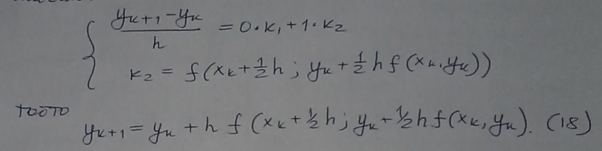 (y_{k+1} - y_k)/h = 0·k₁ + 1·k₂
k₂ = f(x_k + ½h; y_k + ½h f(x_k, y_k))
тобто
y_{k+1} = y_k + h f(x_k + ½h; y_k + ½h f(x_k, y_k). (18)